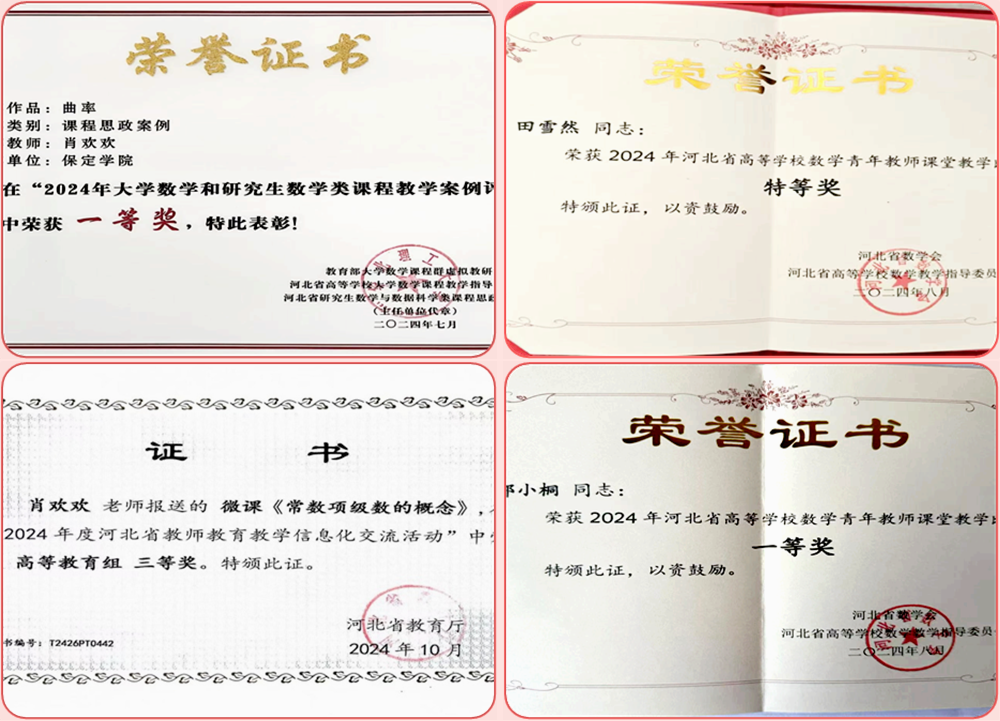 荣誉证书
作品：曲率
类别：课程思政案例
教师：肖欢欢
单位：保定学院
在“2024年大学数学和研究生数学类课程教学案例评
中荣获 一等奖，特此表彰！
教育部大学数学课程群虚拟教研
河北省高等学校大学数学课程教学指导
河北省研究生数学与数据科学类课程思政
（主任单位代章）
二〇二四年七月
荣誉证书
田雪然 同志：
荣获 2024 年河北省高等学校数学青年教师课堂教学
特等奖
特颁此证，以资鼓励。
河北省数学会
河北省高等学校数学教学指导委员
二〇二四年八月
证 书
肖欢欢 老师报送的 微课《常数项级数的概念》，
2024 年度河北省教师教育教学信息化交流活动”中
高等教育组 三等奖。特颁此证。
河北省教育厅
书编号：T2426PT0442
2024 年 10 月
荣誉证书
小桐 同志：
荣获 2024 年河北省高等学校数学青年教师课堂教学
一等奖
特颁此证，以资鼓励。
河北省数学会
河北省高等学校数学教学指导委员
二〇二四年八月